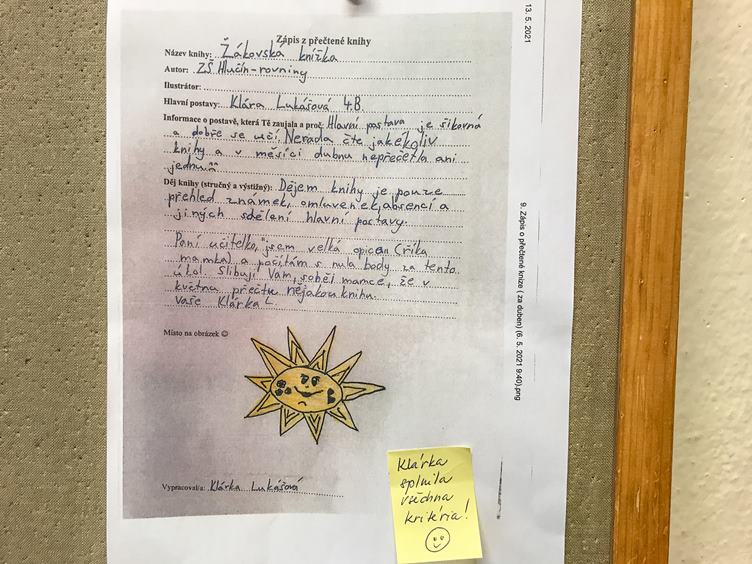 Zápis z přečtené knihy
Název knihy: Žákovska knížka
Autor: ZŠ Hlučín-rovniny
Ilustrátor:
Hlavní postavy: Klára Lukášová 4.B.
Informace o postavě, která Tě zaujala a proč: Hlavní postava je šikovná
a dobře se učí. Nerada čte jakékoliv
knihy a v měsíci dubnu nepřečetla ani
jednu.
Děj knihy (stručný a výstižný): Dějem knihy je pouze
přehled známek, omluvenek, absencí a
jiných sdělení hlavní postavy.
Paní učitelko, jsem velká opice (říká
mamka) a počítám s nula body za tento
úkol. Slibuji Vám, sobě i mamce, že v
květnu přečtu nějakou knihu.
Vaše Klárka
Místo na obrázek ☺
Vypracoval/a: Klárka Lukášová
Klárka
splnila
všechna
kritéria!
13. 5. 2021
9. Zápis o přečtené knize ( za duben) (6. 5. 2021 9:40).png